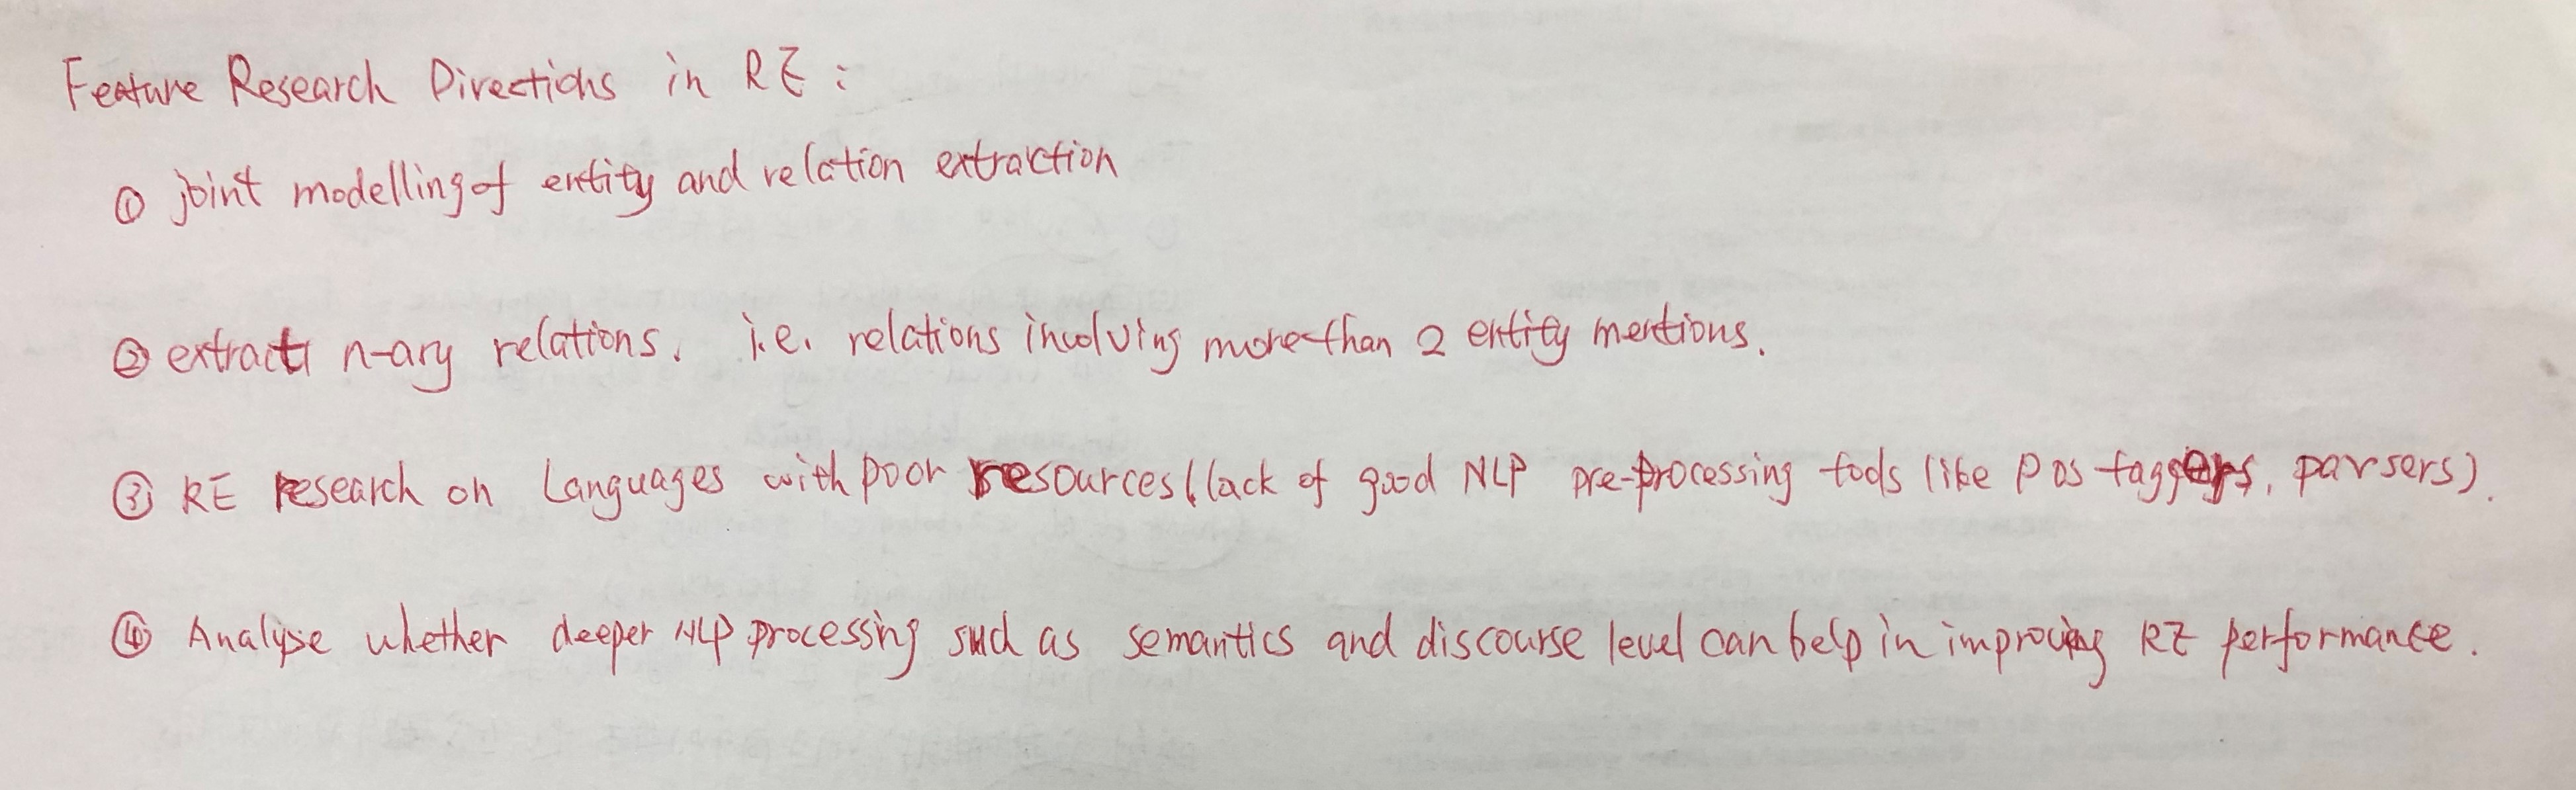 Feature Research Directions in RE :
① joint modelling of entity and relation extraction
② extract n-ary relations. i.e. relations involving more than 2 entity mentions.
③ RE research on Languages with poor resources (lack of good NLP pre-processing tools like POS taggers, parsers).
④ Analyse whether deeper NLP processing such as semantics and discourse level can help in improving RE performance.